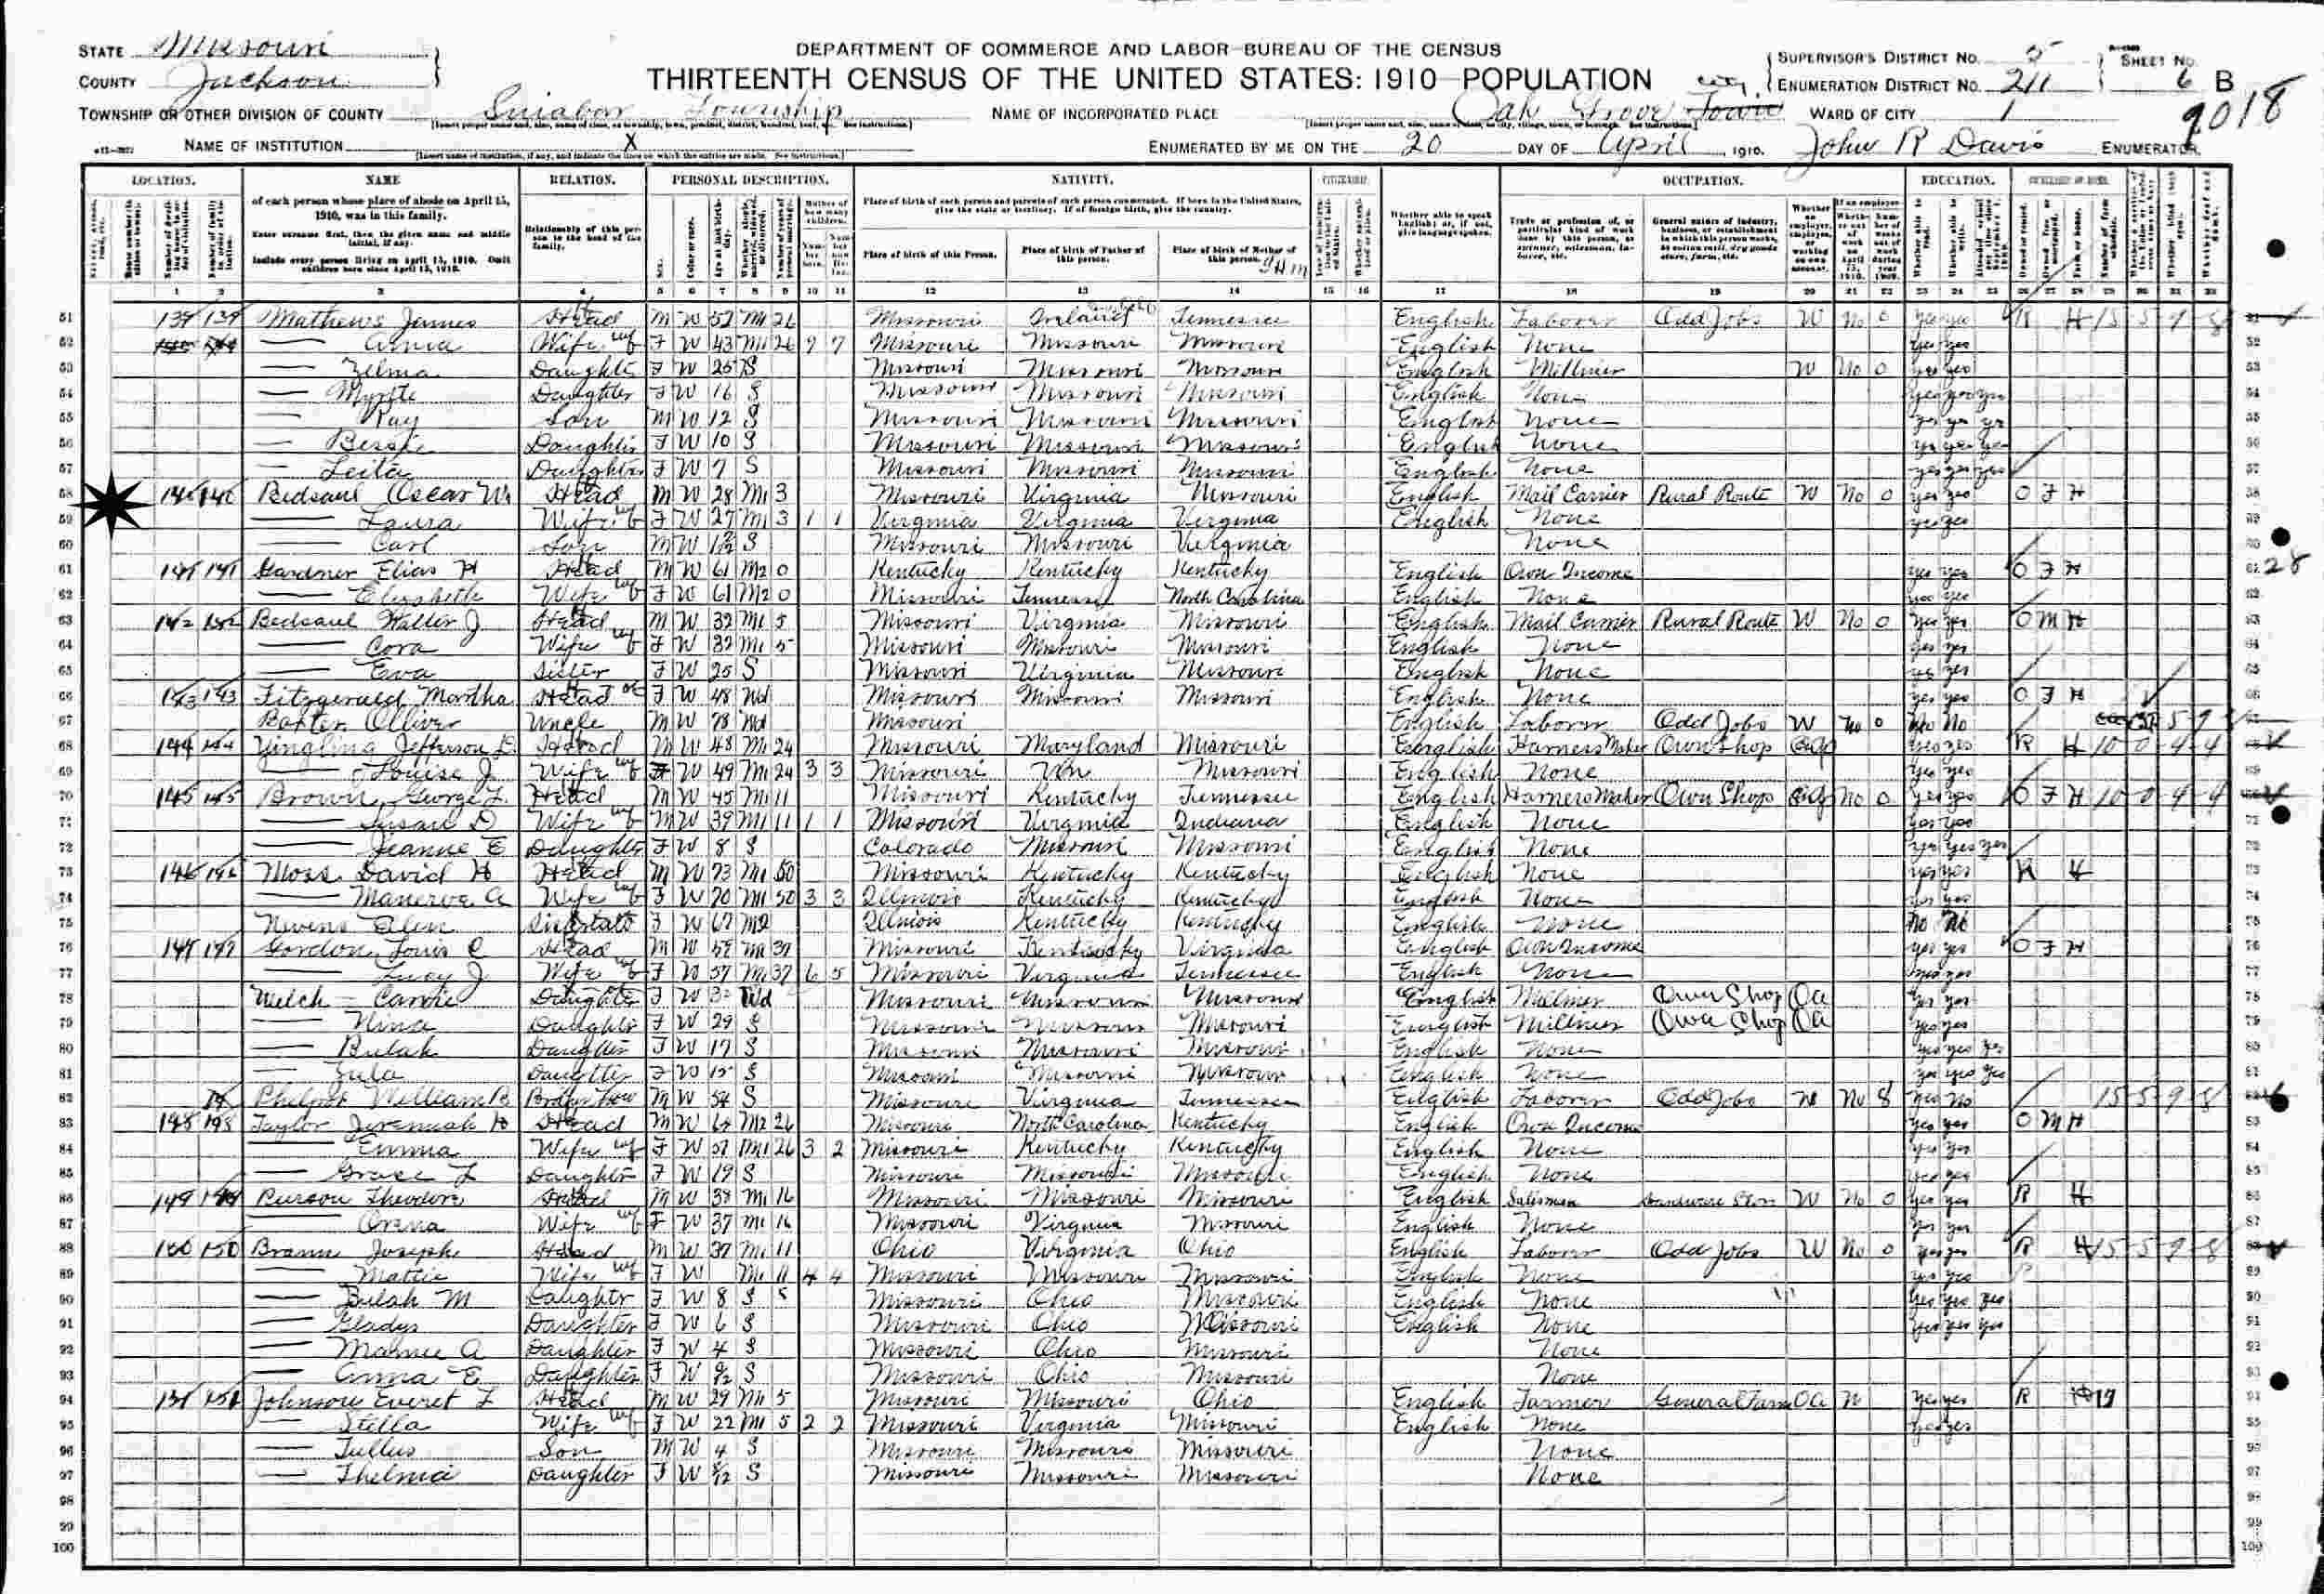 STATE Missouri
COUNTY Jackson
TOWNSHIP OR OTHER DIVISION OF COUNTY Sniabar Township
DEPARTMENT OF COMMERCE AND LABOR-BUREAU OF THE CENSUS
THIRTEENTH CENSUS OF THE UNITED STATES: 1910-POPULATION
NAME OF INCORPORATED PLACE Oak Grove City Town
SUPERVISOR'S DISTRICT NO. 5
ENUMERATION DISTRICT NO. 211
SHEET NO. 6 B
WARD OF CITY 1
9018
NAME OF INSTITUTION X
ENUMERATED BY ME ON THE 20 DAY OF April, 1910. John R Davis ENUMERATOR
LOCATION. NAME RELATION. PERSONAL DESCRIPTION. NATIVITY. CITIZENSHIP. OCCUPATION. EDUCATION.
of each person whose place of abode on April 15, 1910, was in this family.
Enter surname first, then the given name and middle initial, if any.
Include every person living on April 15, 1910. Omit children born since April 15, 1910.
Relationship of this person to the head of the family.
Place of birth of this Person. Place of birth of Father of this person. Place of birth of Mother of this person.
51 139 139 Mathews James Head M W 52 M1 26 Missouri Tennessee English Laborer Odd Jobs W No 0 yes yes R H
52 Wife F W 43 M1 26 7 7 Missouri Missouri Missouri English None yes yes
53 Zelma Daughter F W 25 S Missouri Missouri Missouri English Milliner W No 0 yes yes
54 Myrtle Daughter F W 16 S Missouri Missouri Missouri English None yes yes yes
55 Ray Son M W 12 S Missouri Missouri Missouri English None yes yes yes
56 Bessie Daughter F W 10 S Missouri Missouri Missouri English None yes yes yes
57 Leita Daughter F W 7 S Missouri Missouri Missouri English None yes yes yes
58 140 140 Bedsaul Oscar W. Head M W 28 M1 3 Missouri Virginia Missouri English Mail Carrier Rural Route W No 0 yes yes O F H
59 Laura Wife F W 27 M1 3 1 1 Virginia Virginia Virginia English None yes yes
60 Carl Son M W S Missouri Missouri Virginia None
61 141 141 Gardner Elias H Head M W 61 M2 0 Kentucky Kentucky Kentucky English Own Income yes yes O F H 28
62 Elizabeth Wife F W 61 M2 0 Missouri Tennessee North Carolina English None yes yes
63 142 142 Bedsaul Walter J Head M W 32 M1 5 Missouri Virginia Missouri English Mail Carrier Rural Route W No 0 yes yes O M H
64 Cora Wife F W 32 M1 5 Missouri Missouri Missouri English None yes yes
65 Eva Sister F W 25 S Missouri Virginia Missouri English None yes yes
66 143 143 Fitzgerald Martha Head F W 48 Wd Missouri Missouri Missouri English None yes yes O F H
67 Baxter Olliver Uncle M W 78 Wd Missouri English Laborer Odd Jobs W No 0 No No
68 144 144 Yingling Jefferson D. Head M W 48 M1 24 Missouri Maryland Missouri English Harness Maker Own Shop yes yes R H 10-0-4-4
69 Louise J. Wife F W 49 M1 24 3 3 Missouri Missouri English None yes yes
70 145 145 Brown George L. Head M W 45 M1 11 Missouri Kentucky Tennessee English Harness Maker Own Shop No 0 yes yes O F H 10-0-4-4
71 Susan D Wife M W 39 M1 11 1 1 Missouri Virginia Indiana English None yes yes
72 Jeanne E Daughter F W 8 S Colorado Missouri Missouri English None yes yes yes
73 146 146 Moss David H Head M W 73 M1 50 Missouri Kentucky Kentucky English None yes yes R H
74 Manerva A Wife F W 70 M1 50 3 3 Illinois Kentucky Kentucky English None yes yes
75 Nevins F W 67 Illinois Kentucky Kentucky English None No No
76 147 147 Gordon Louis C Head M W 59 M1 37 Missouri Kentucky Virginia English Own Income yes yes O F H
77 Lucy J Wife F W 57 M1 37 6 5 Missouri Virginia Tennessee English None yes yes
78 Welch Carrie Daughter F W Wd Missouri Missouri Missouri English Milliner Own Shop Oa yes yes
79 Nina Daughter F W 29 S Missouri Missouri Missouri English Milliner Own Shop Oa yes yes
80 Bulah Daughter F W 17 S Missouri Missouri Missouri English None yes yes yes
81 Zula Daughter F W S Missouri Missouri Missouri English None yes yes yes
82 Phelpot William B M W 54 S Missouri Virginia Tennessee English Laborer Odd Jobs W No 8 yes No 15-5-9-8
83 148 148 Taylor Jeremiah H Head M W M2 26 Missouri North Carolina Kentucky English Own Income yes yes O M H
84 Emma Wife F W 57 M1 26 3 2 Missouri Kentucky Kentucky English None yes yes
85 Grace L Daughter F W 19 S Missouri Missouri Missouri English None yes yes
86 149 149 Theodore Head M W 38 M1 16 Missouri Missouri Missouri English Salesman Hardware Store W No 0 yes yes R H
87 Wife F W 37 M1 16 Missouri Virginia Missouri English None yes yes
88 150 150 Brann Joseph Head M W 37 M1 11 Ohio Virginia Ohio English Laborer Odd Jobs W No 0 yes yes R H 15-5-9-8
89 Mattie Wife F W M1 11 4 4 Missouri Missouri Missouri English None yes yes
90 Bulah M Daughter F W 8 S Missouri Ohio Missouri English None yes yes yes
91 Gladys Daughter F W 6 S Missouri Ohio Missouri English None yes yes yes
92 Mamie A Daughter F W 4 S Missouri Ohio Missouri None
93 Anna E Daughter F W S Missouri Ohio Missouri None
94 151 151 Johnson Everet L Head M W 29 M1 5 Missouri Missouri Ohio English Farmer General Farm Oa yes yes R
95 Stella Wife F W 22 M1 5 2 2 Missouri Virginia Missouri English None yes yes
96 Tullus Son M W 4 S Missouri Missouri Missouri None
97 Thelma Daughter F W S Missouri Missouri Missouri None
98
99
100